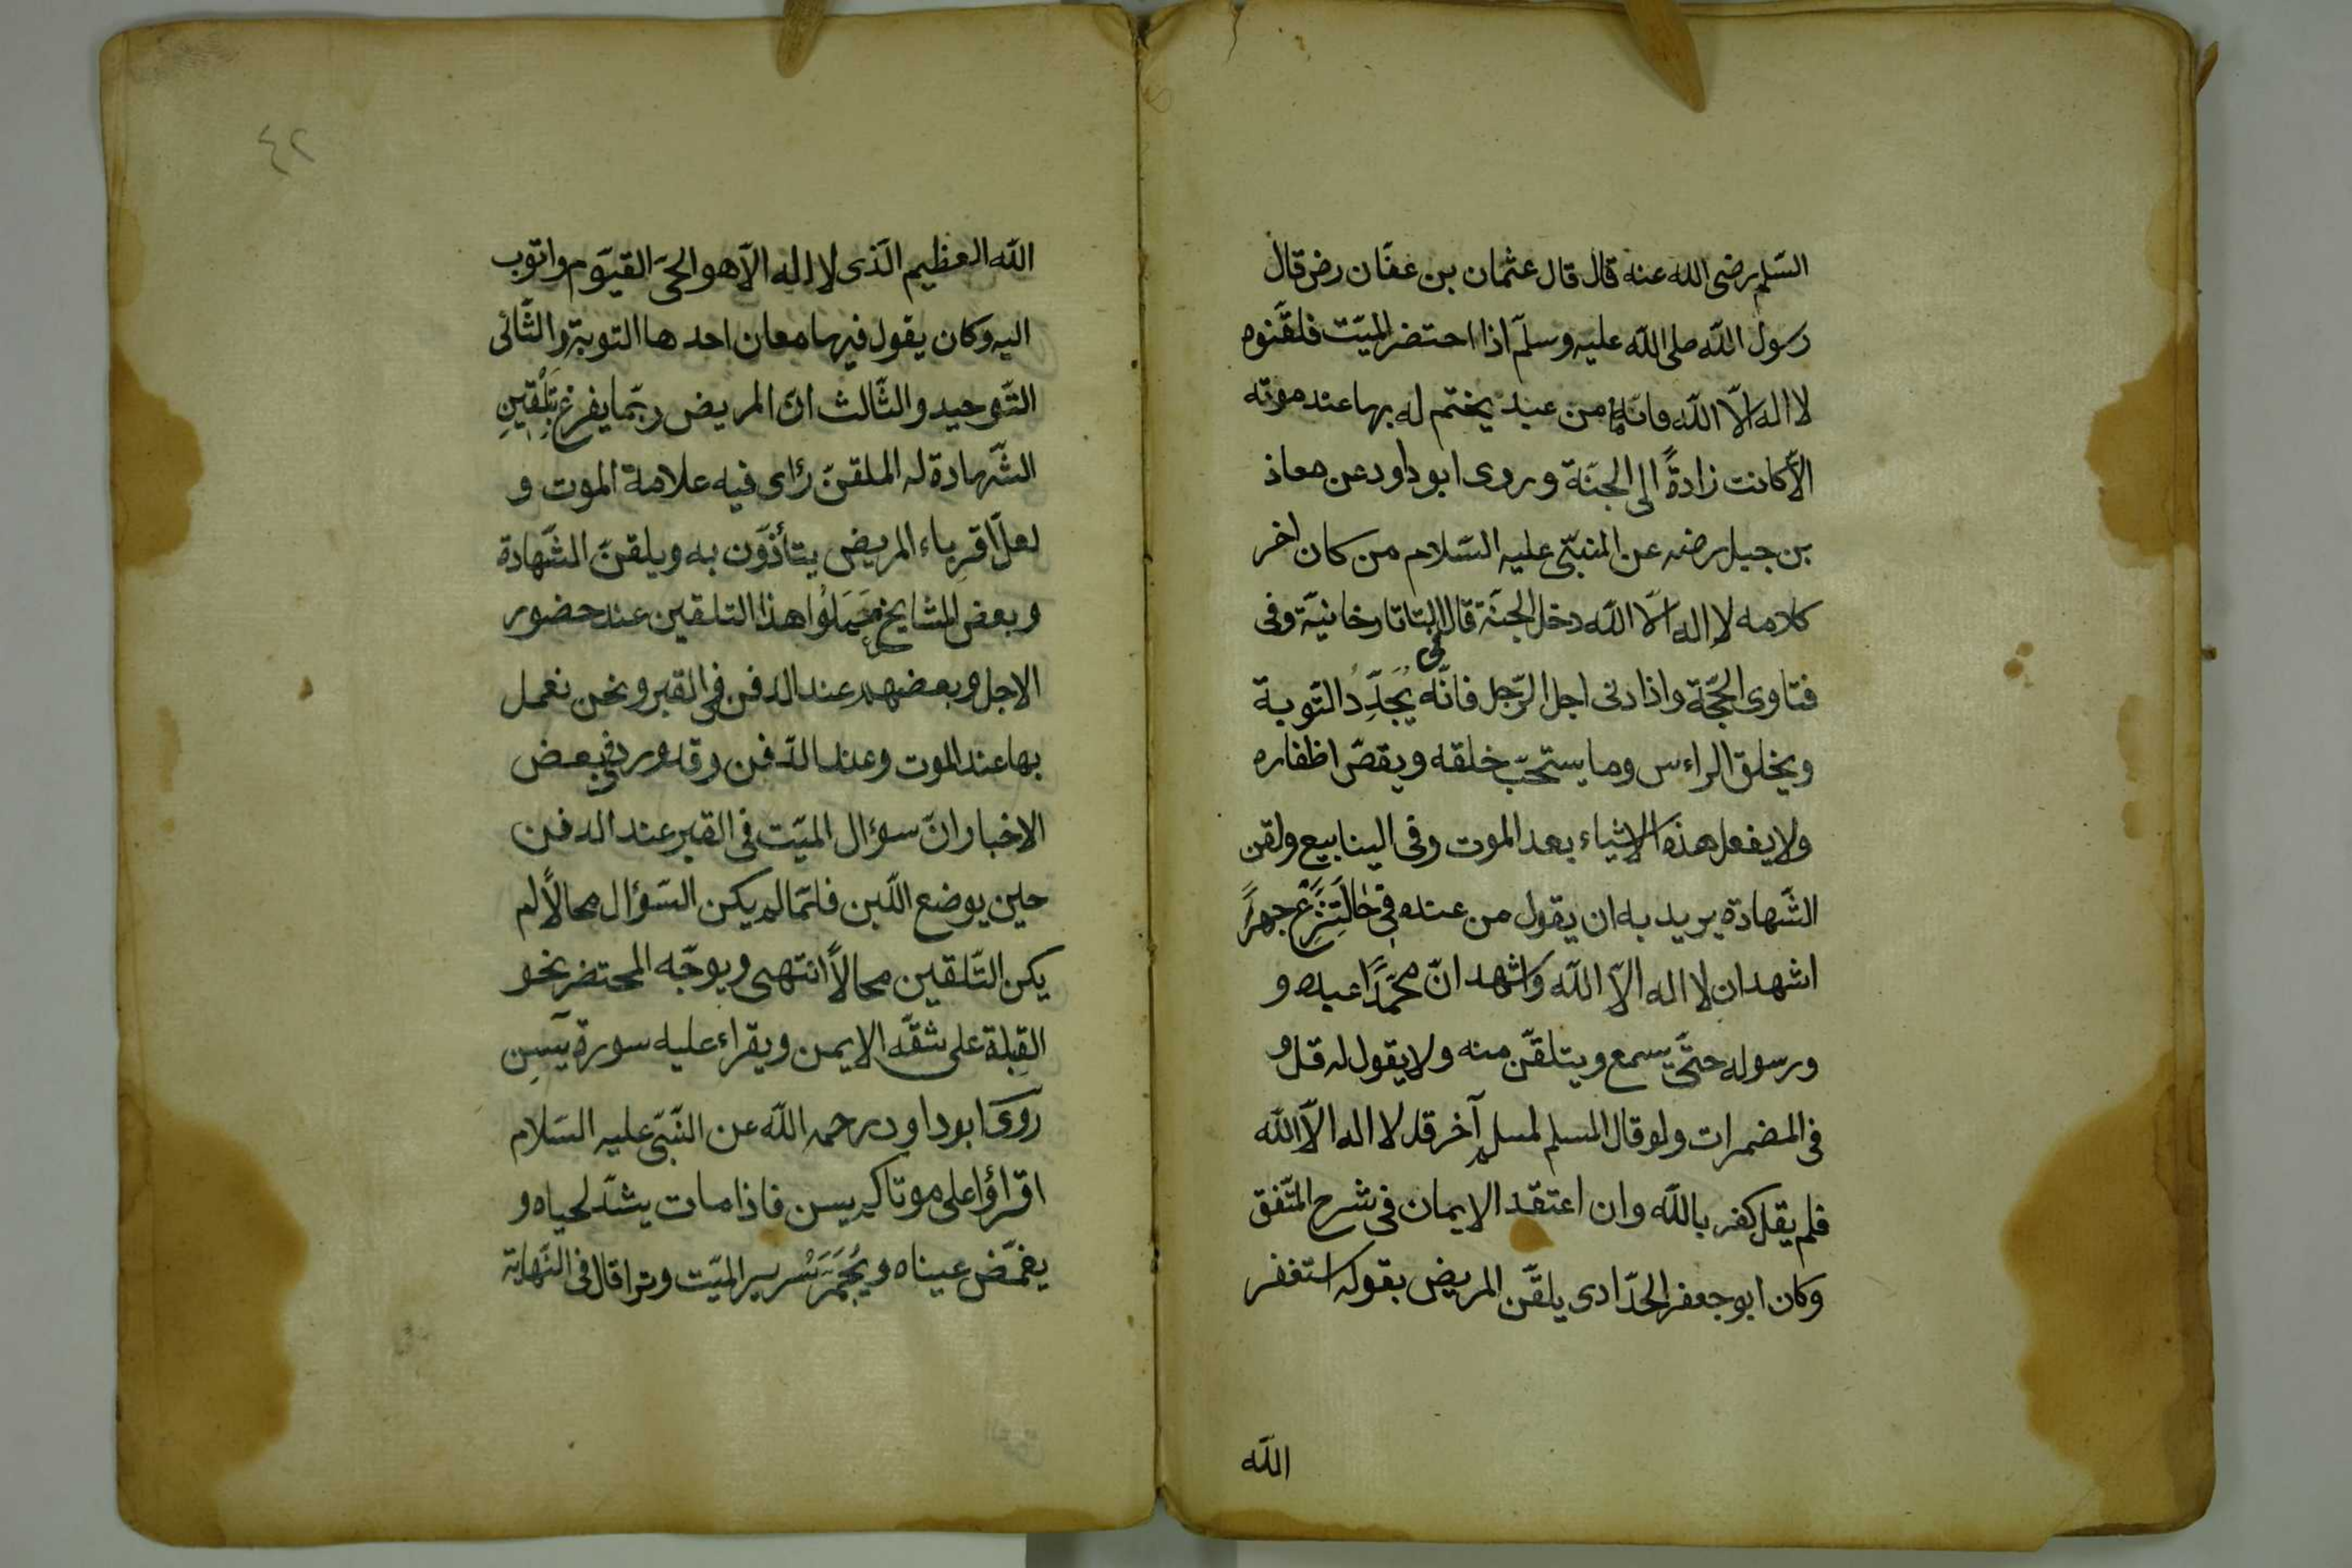 السّلم رضى الله عنه قال قال عثمان بن عفّان رض قال
رسول اللّه صلى اللّه عليه وسلّم اذا احتضر الميّت فلقّنوه
لا اله الّا اللّه فانّه ما من عبد يختم له بها عند موته
الّا كانت زادةً الى الجنّة وروى ابو داود عن معاذ
بن جبل رضه عن النبّى عليه السّلام من كان اخر
كلامه لا اله الّا اللّه دخل الجنّة قال فى التاتارخانيّة وفى
فتاوى الحجّة واذا دنى اجل الرّجل فانّه يُجَدِّدُ التّوبة
ويخلق الراءس وما يستحبّ خلقه ويقصّ اظفاره
ولا يفعل هذه الاشياء بعد الموت وفى الينابيع ولقن
الشّهادة يريد به ان يقول من عنده فِى حَالَتِ نَزْعٍ جهرًا
اشهد ان لا اله الّا اللّه واشهد انّ محمّدًا عبده و
ورسوله حتّى يسمع ويتلقّن منه ولا يقول له قل و
فى المضمرات ولو قال المسلم لمسلم آخر قل لا اله الّا اللّه
فلم يقل كفر باللّه وان اعتقد الايمان فى شرح المتّفق
وكان ابو جعفر الحدّادى يلقّن المريض بقوله استغفر
اللّه
٤٢
اللّه العظيم الّذى لا اله الّا هو الحىّ القيّوم واتوب
اليه وكان يقول فيها معان احدها التوبة والثّانى
التّوحيد والثّالث انّ المريض ربّما يفرغ بِتَلْقِينِ
الشّهادة له الملقن رأى فيه علامة الموت و
لعلّ اقرباء المريض يتأذّون به ويلقن الشّهادة
وبعض المشايخ حَمَلُوا هذا التلقين عند حضور
الاجل وبعضهم عند الدفن فى القبر ونحن نعمل
بها عند الموت وعند الدّفن وقد ورد فى بعض
الاخبار انّ سؤال الميّت فى القبر عند الدفن
حين يوضع اللّبن فلمّا لم يكن السّؤال محالاً لم
يكن التّلقين محالاً انتهى ويوجّه المحتضر نحو
القِبلة على شقّه الايمن ويقراء عليه سورة يسِن
روَى ابو داود رحمه اللّه عن النّبّى عليه السّلام
اقراؤا على موتاكم يسن فاذا مات يشدّ لحياه و
يغمّض عيناه ويُجَمَّرَ سرير الميّت وترا قال فى النّهاية